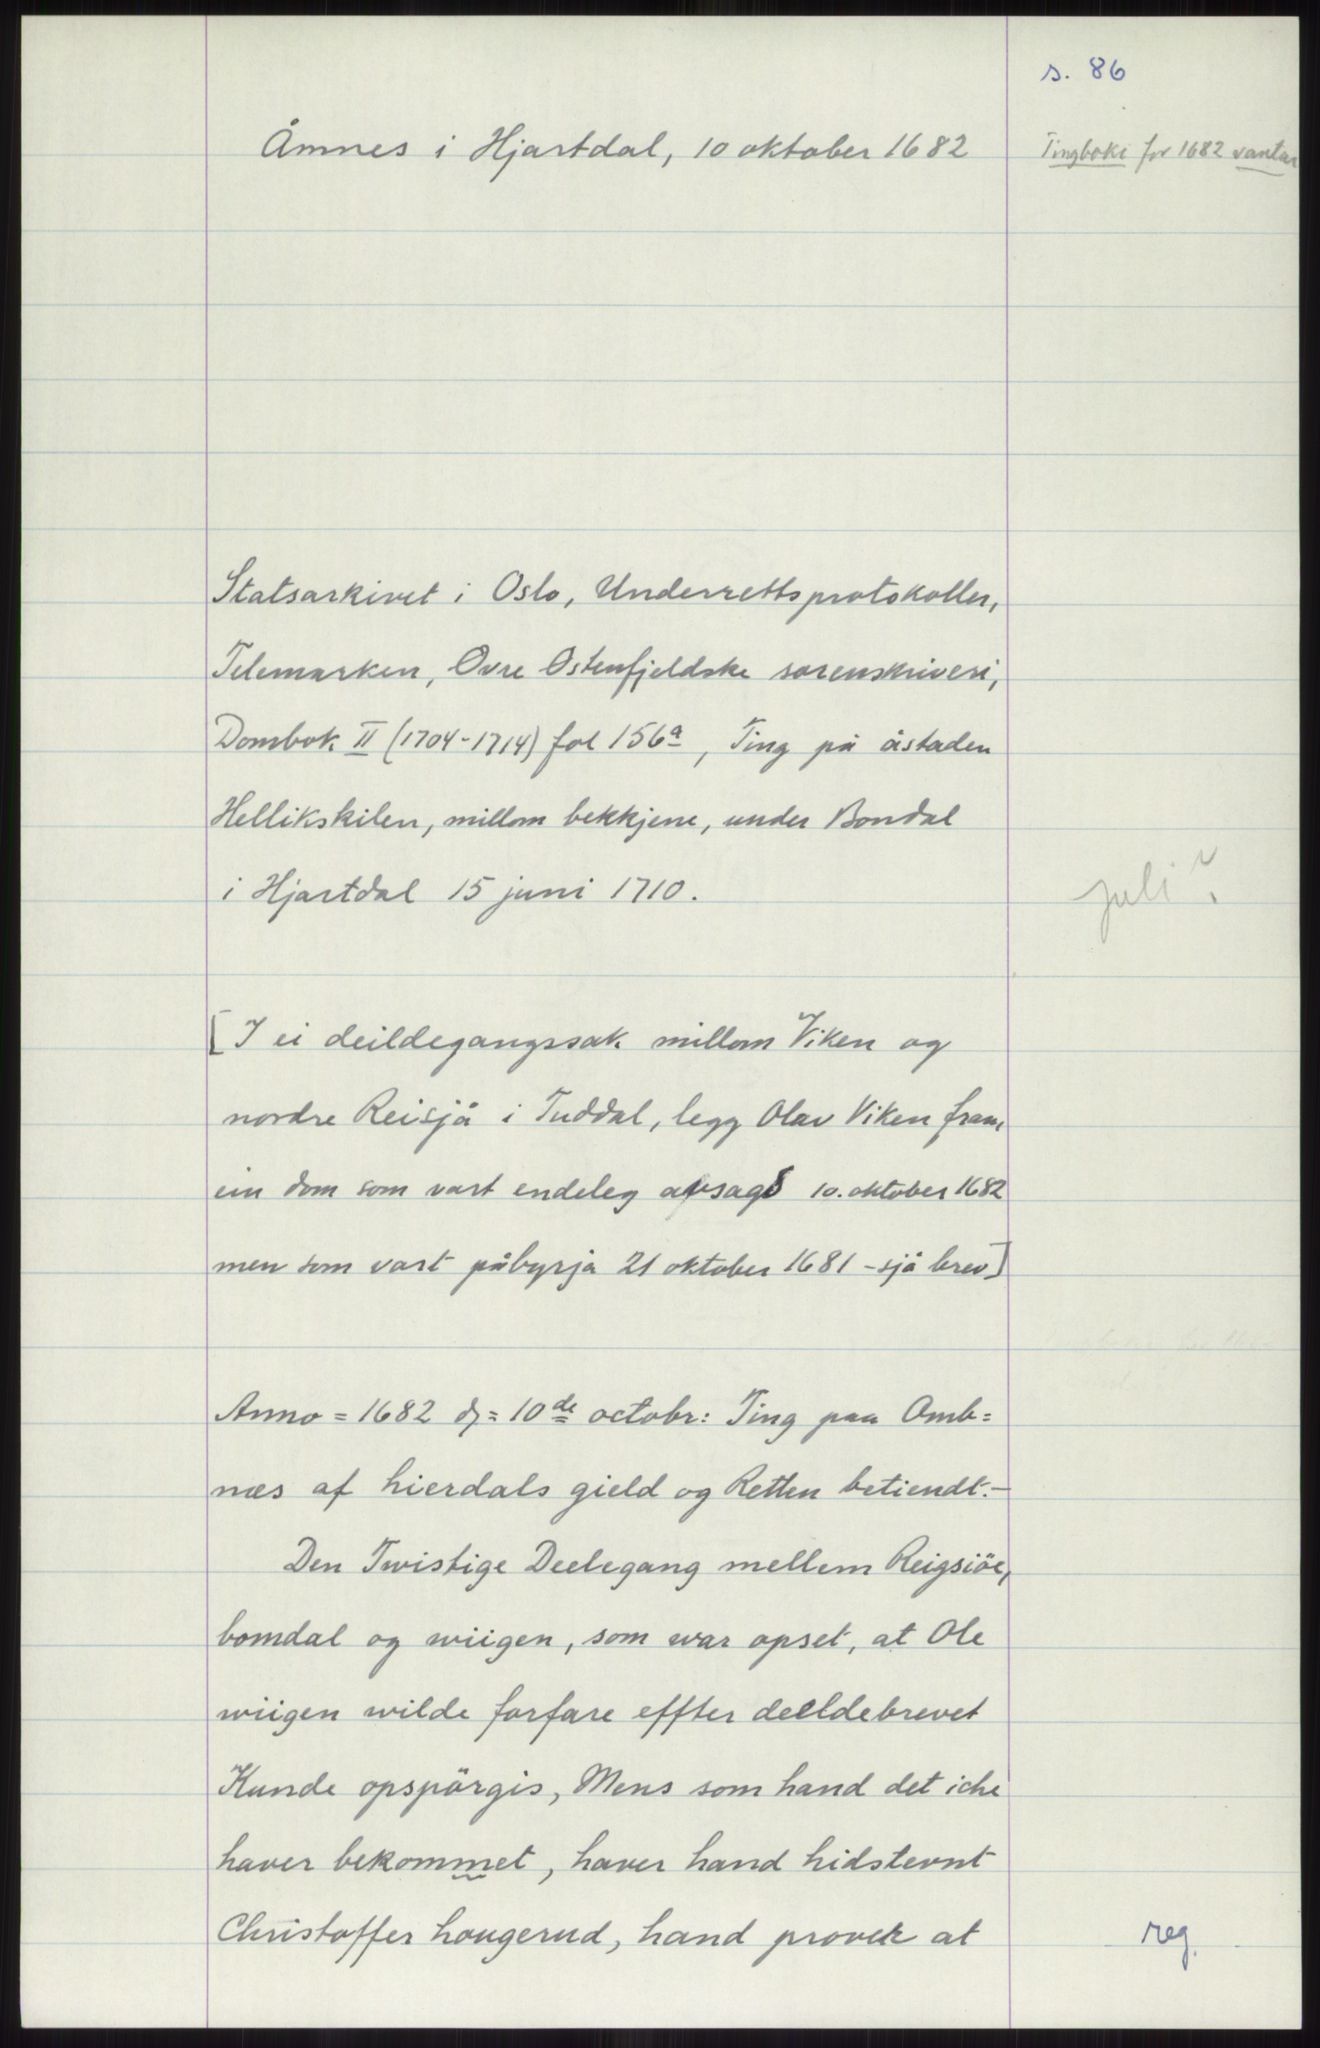 s. 86
Åmnes i Hjartdal, 10 oktober 1682
Tingboki for 1682 vantar
Statsarkivet i Oslo, Underrettsprotokoller,
Telemarken, Övre Østenfjeldske sorenskriveri,
Dombok II (1704-1714) fol 156a, Ting på åstaden
Hellikskilen, millom bekkjene, under Bondal
i Hjartdal 15 juni 1710.
juli?
[I ei deildegangssak millom Viken og
nordre Reisjå i Tuddal, legg Olav Viken fram
ein dom som vart endeleg avsagd 10. oktober 1682
men som vart påbyrja 21 oktober 1681 - sjå brev]
Anno = 1682 d= 10de octobr: Ting paa Omb=
næs af hierdals gield og Retten betiendt.-
Den Twistige Deelegang mellem Reigsiöe,
bomdal og wiigen, som war opset, at Ole
wiigen wilde forfare effter deeldebrevet
Kunde opspörgis, Mens som hand det iche
haver bekommet, haver hand hidstevnt
Christoffer hougerud, hand prover at
reg.